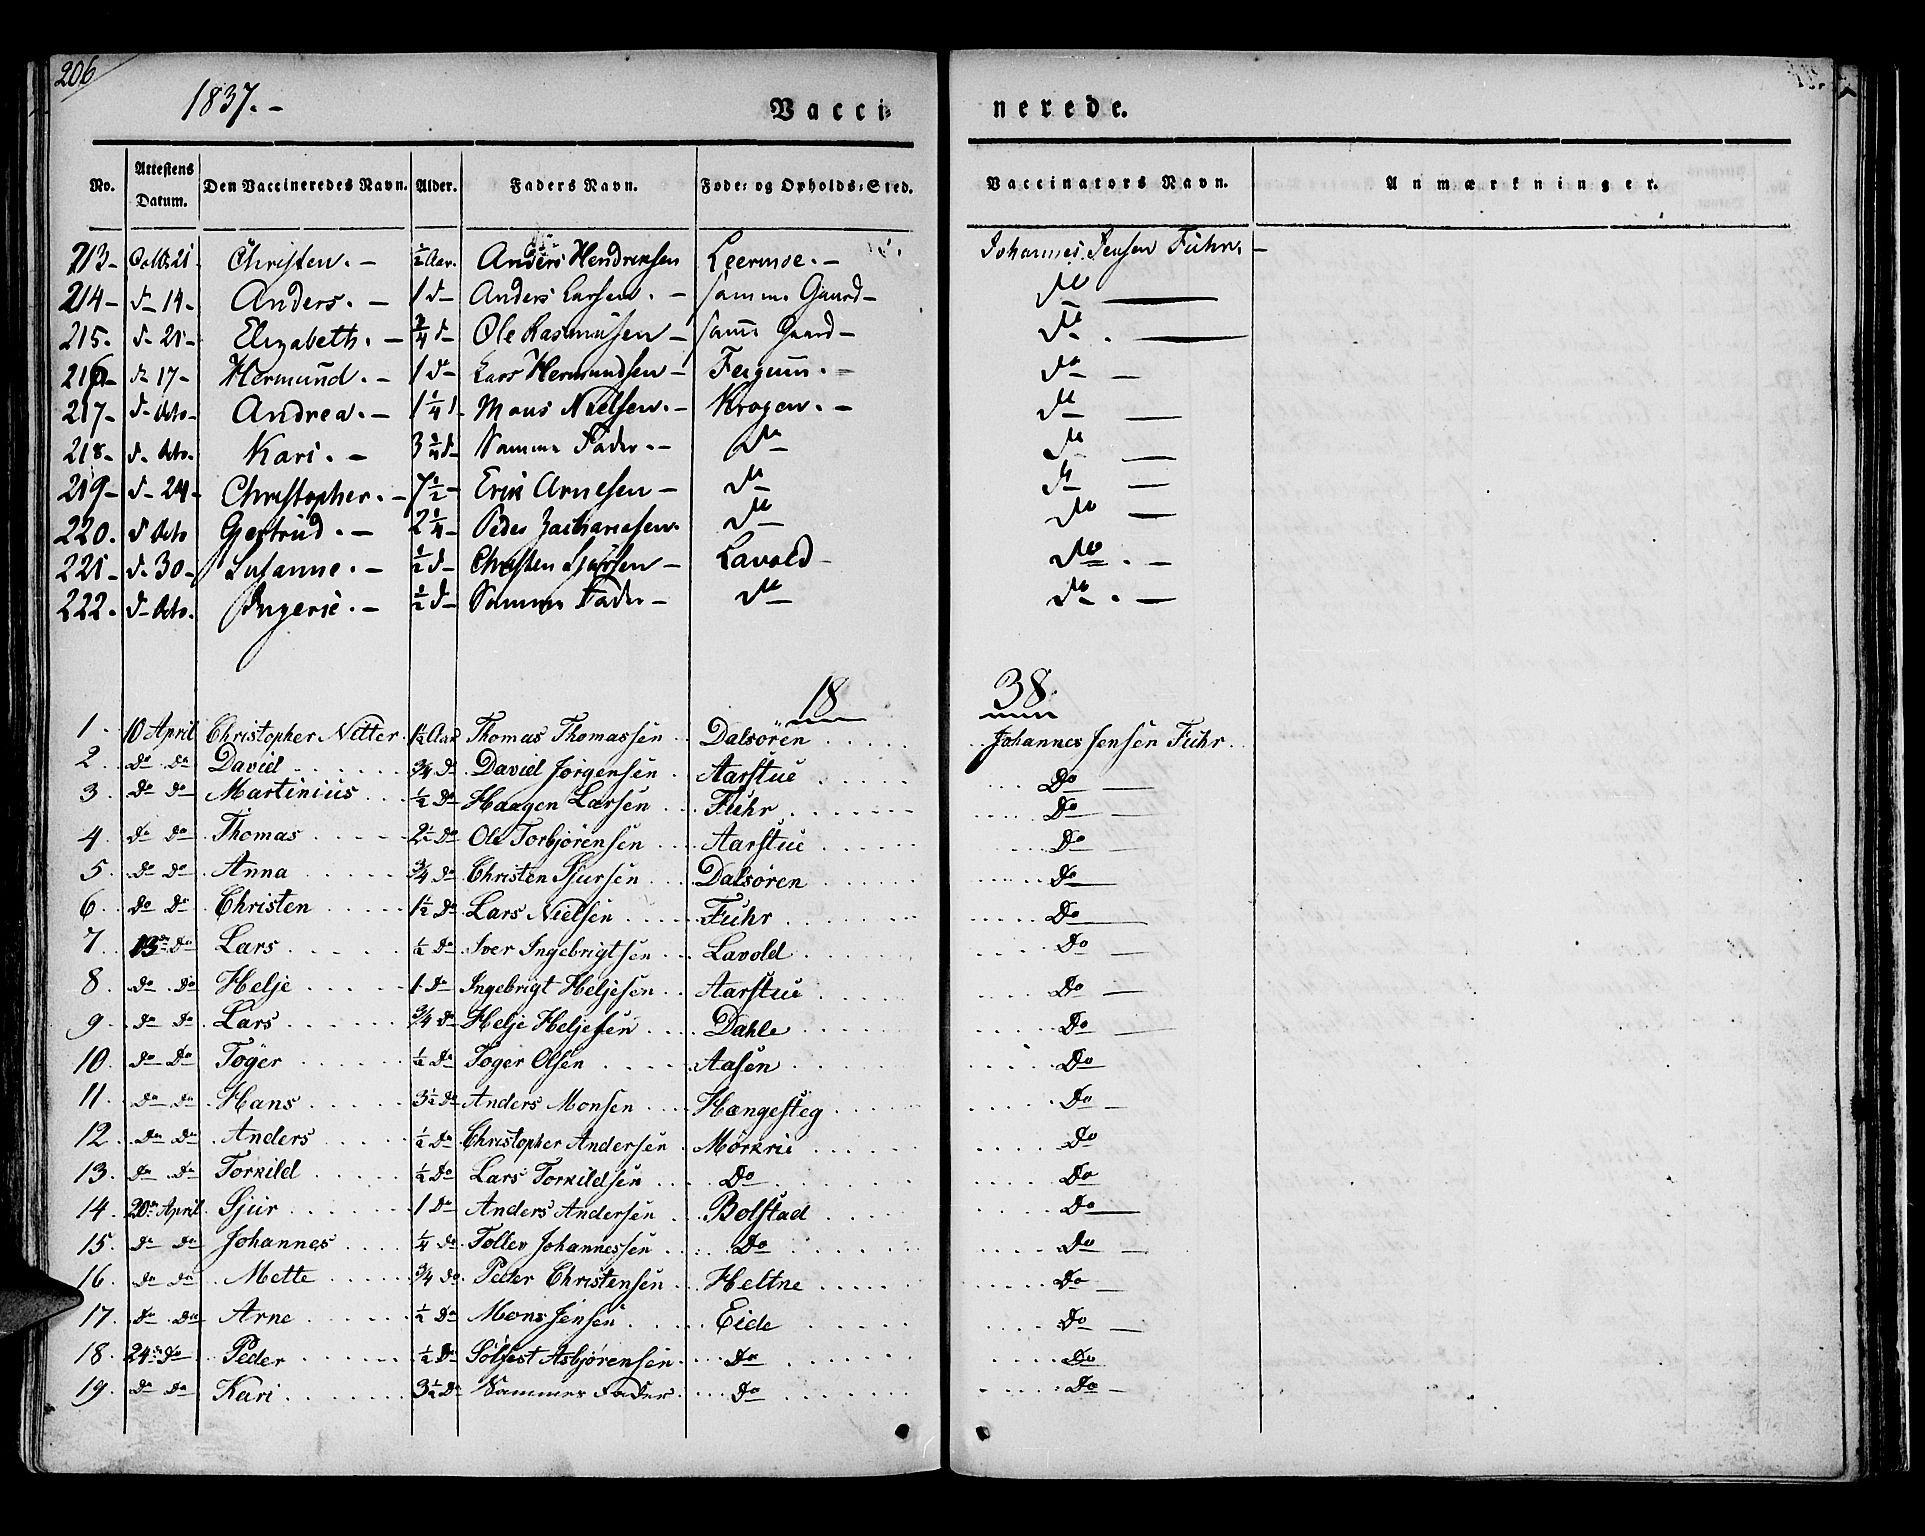 206
1837. -
Vacci- nerede.
No. Attestens Datum. Den Vaccineredes Navn. Alder. Faders Navn. Føde- og Opholds-Sted. Vaccinators Navn. Anmærkninger.
213- Octbr 21 Christen. - ½ Aar. Anders Hendrensen Leermoe. - Johannes Jensen Fuhr. -
214- d- 14- Anders. - 1 d- Anders Larsen. - samme Gaard- do
215. d- 21- Elizabeth. - ¾ d- Ole Rasmusen - samme Gaard- do.
216- d- 17- Hermund. - 1 do- Lars Hermundsen - Fergum. - do -
217- d- dito- Andrea. - 1¼ d- Mons Nielsen. - Krogen. - do -
218- d- dito. Kari. - 3 d- Samme Fader. - do do -
219- d- 24- Christopher. - 7½- Erik Arnesen - do do -
220. d dito Gjertrud. - 2¼- Peder Zachariesen. do do -
221- d- 30- Susanne. - ½ d- Christen Sjursen - Lavold- do. -
222. d- dito. Ingerie. - ½ d- Samme Fader - do do. -
18 38.
1. 10 April Christopher Nitter. 1½ Aar Thomas Thomassen Dalsören Johannes Jensen Fuhr.
2. do do David ¾ do David Jørgensen Aarstue Do
3. do do Martinius ½ Do Haagen Larsen Fuhr Do
4. do do Thomas 2½ Do Ole Torbjörensen Aarstue Do
5. do do Anna ¾ Do Christen Sjursen Dalsören Do
6. do do Christen 1½ Do Lars Nielsen Fuhr Do
7. 13de Do Lars ½ Do Iver Ingebrigtsen Lavold Do
8. do do Helje 1 Do Ingebrigt Heljesen Aarstue Do
9. do do Lars ¾ Do Helje Heljesen Dahle Do
10. do do Töger ½ Do Toger Olsen Aasen Do
11. do do Hans 3½ Do Anders Monsen Hængesteg Do
12. do do Anders ½ Do Christopher Andersen Mørkrie Do
13. do do Torkild ½ Do Lars Torkildsen Do Do
14. 20de April Sjur 1 Do Anders Andersen Bolstad Do
15. do do Johannes ¼ do Tollev Johannessen Do Do
16. do do Mette ¾ do Peder Christensen Heltne Do
17. do do Arne ½ Do Mons Jensen Eide Do
18. 24de Do Peder ½ Do Sölfest Asbjørensen Do Do
19. do do Kari 3½ Do Sammes Fader Do Do